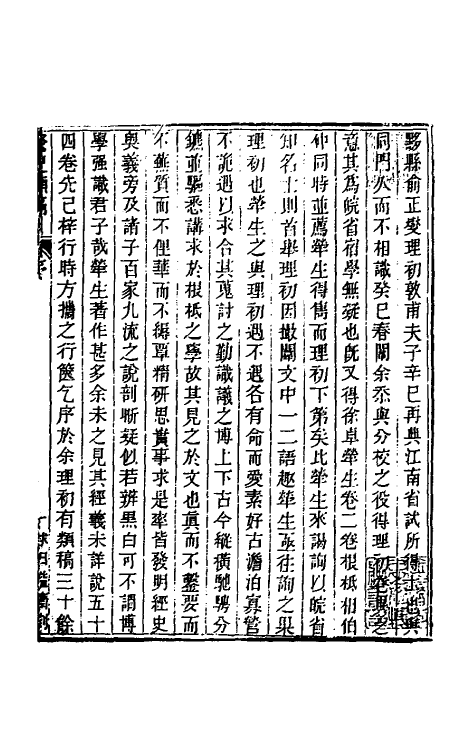 黟縣俞正燮理初敦甫夫子辛巳再典江南省試所得士也與
同門久而不相識癸巳春闈余忝與分校之役得理初卷
意其為皖省宿學無疑也旣又得徐卓犖生卷二卷根柢相伯
仲同時並薦犖生得雋而理初下第矣比犖生來謁詢以皖省
知名士則首舉理初因撤闈文中一二語趣犖生亟往詢之果
理初也犖生之與理初遇不遇各有命而愛素好古澹泊寡營
不詭遇以求合其蒐討之勤識議之博上下古今縱橫馳騁分
鑣並驅悉講求於根柢之學故其見之於文也眞而不鑿要而
不蕪質而不俚華而不縟覃精研思實事求是率皆發明經史
奥義旁及諸子百家九流之說剖晰疑似若辨黑白可不謂博
學强識君子哉犖生著作甚多余未之見其經義未詳說五十
四卷先已梓行時方攜之行篋乞序於余理初有類稿三十餘
序